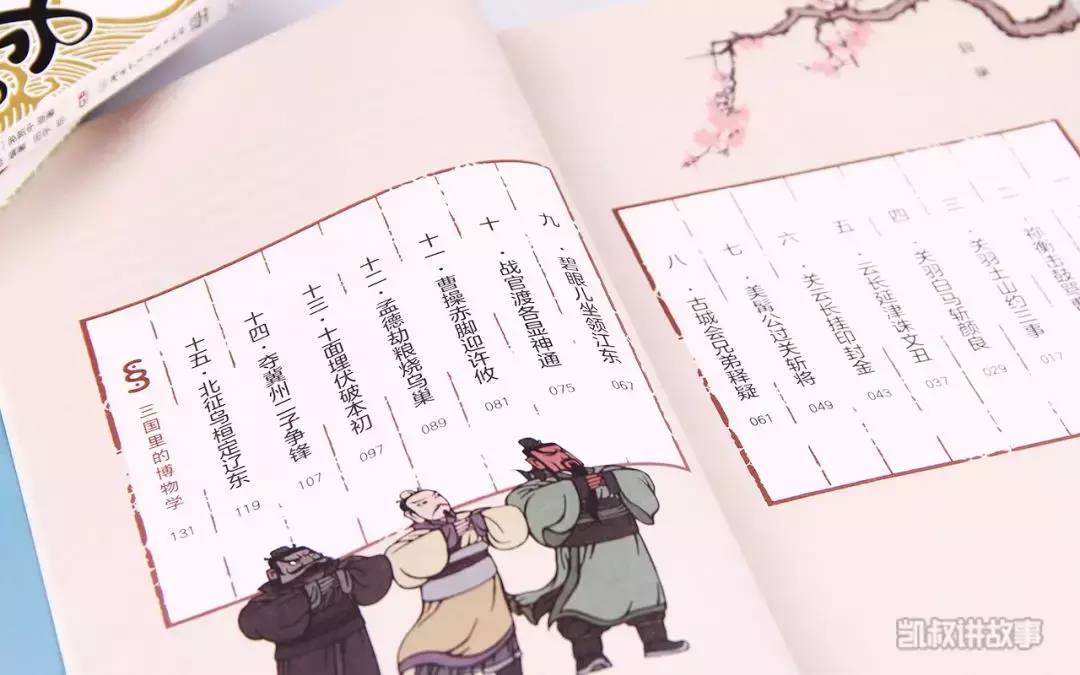 目录
一
祢衡击鼓骂曹
二·关羽土山约三事
017
三·关羽白马斩颜良
029
四·云长延津诛文丑
037
五·关云长挂印封金
043
六·美髯公过关斩将
049
七·古城会兄弟释疑
061
八
九·碧眼儿坐领江东
067
十·战官渡各显神通
075
十一·曹操赤脚迎许攸
081
十二·孟德劫粮烧乌巢
089
十三·十面埋伏破本初
097
十四·夺冀州二子争锋
107
十五·北征乌桓定辽东
119
三国里的博物学
131
凯叔讲故事